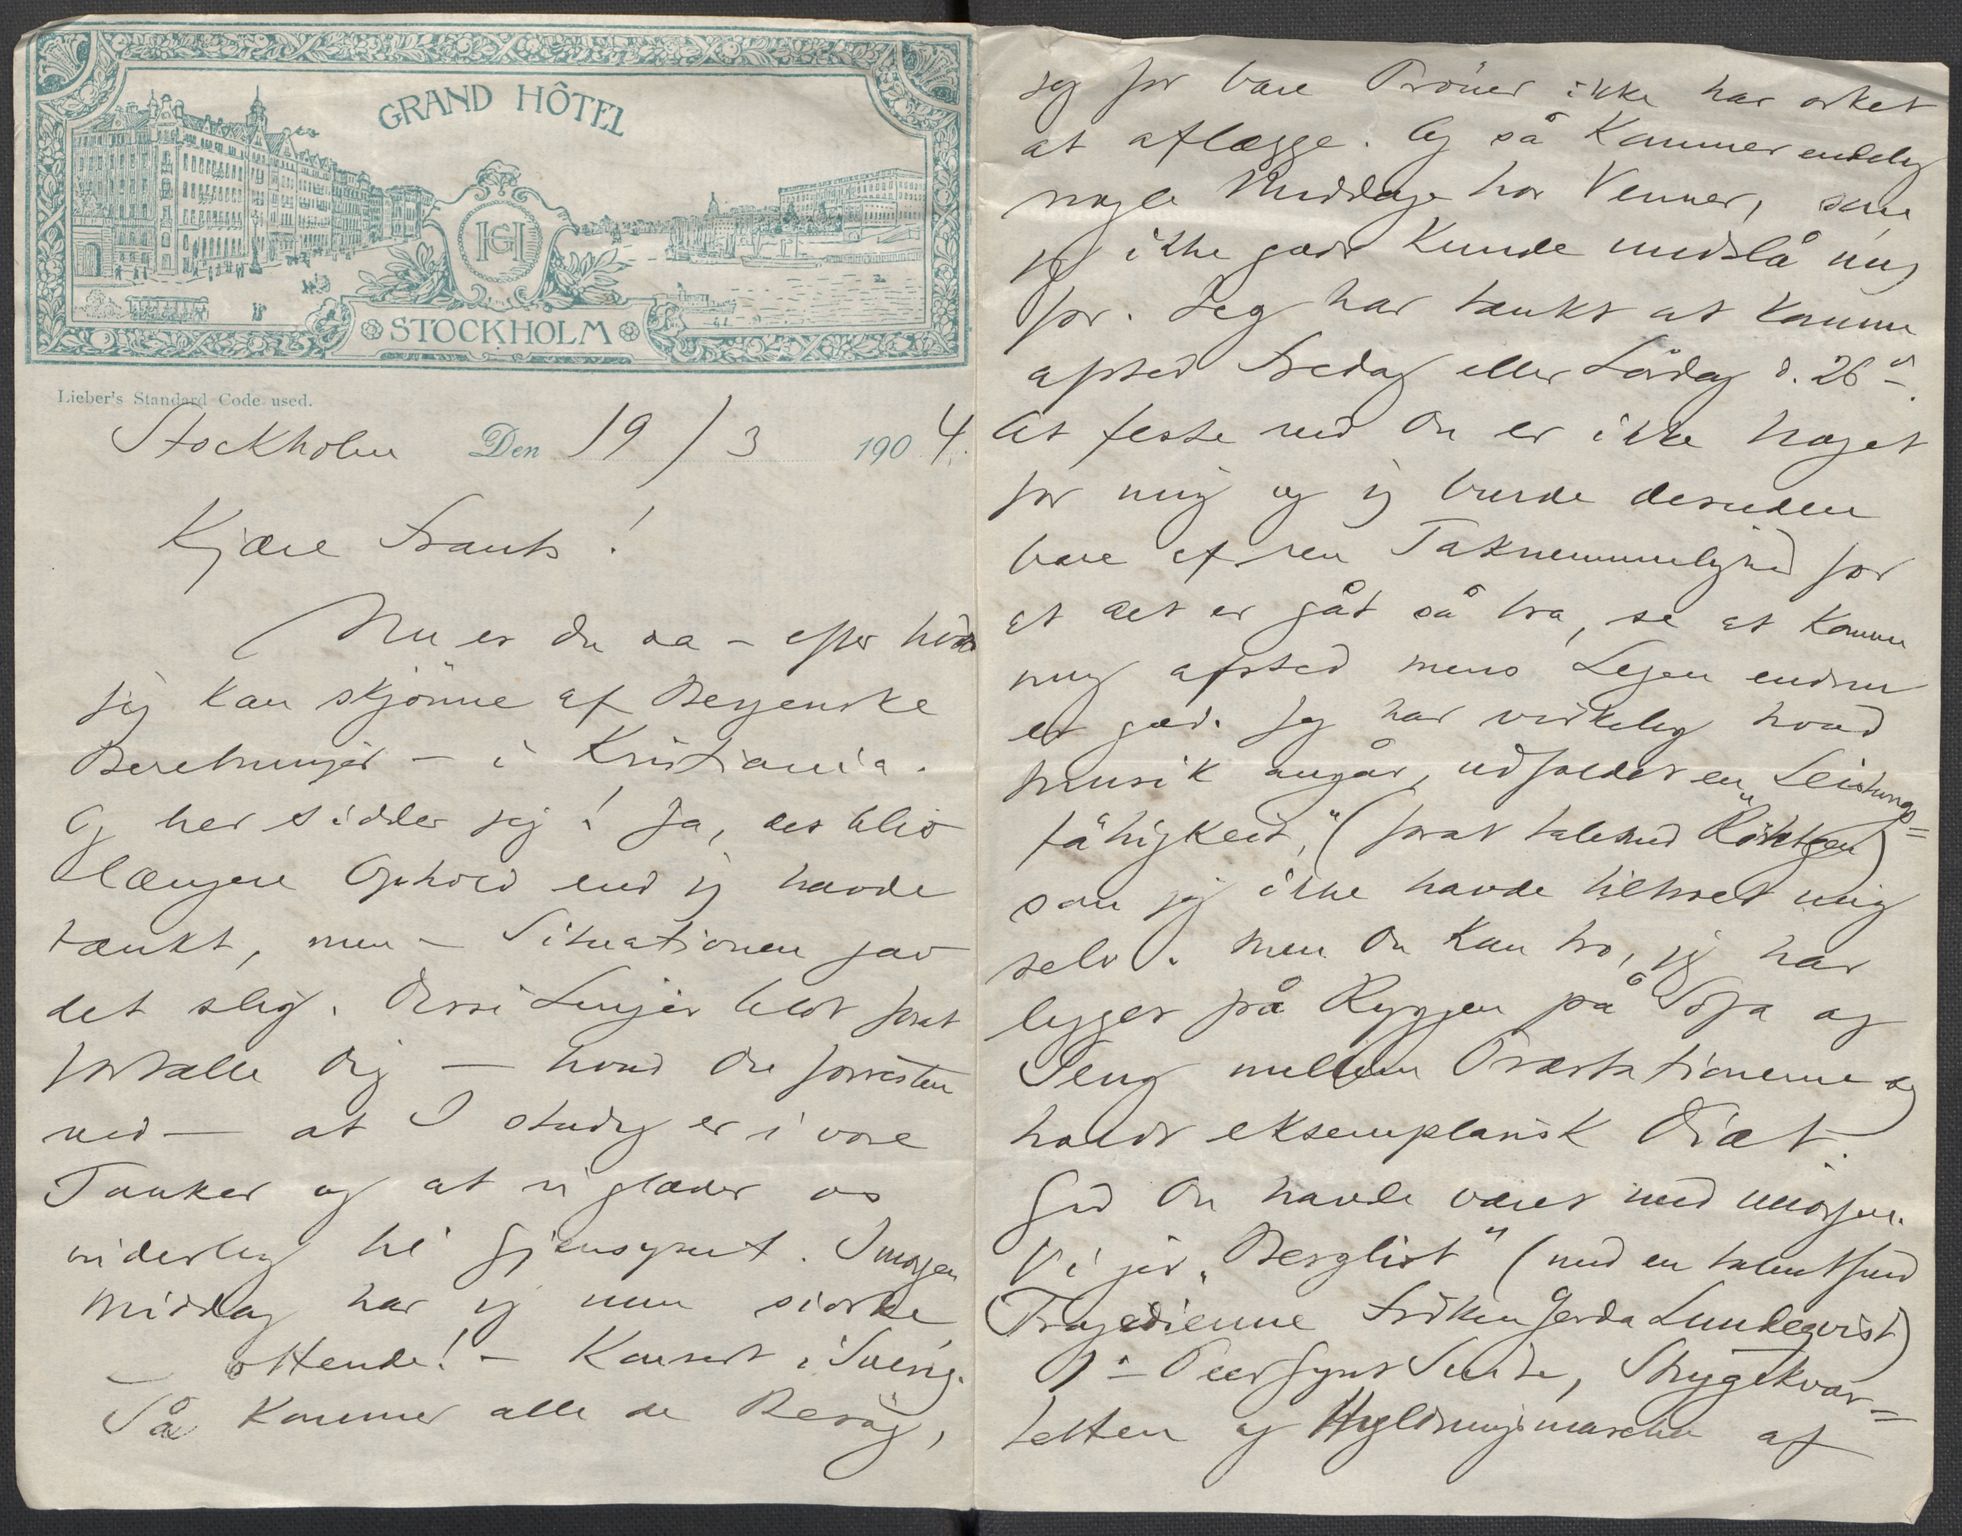 GRAND HÔTEL
GH
STOCKHOLM
Lieber's Standard Code used.
Stockholm Den 19/3 1904.
Kjære Frants!
Nu er Du da – efter hvad
jeg kan skjönne af Bergenske
Beretninger – i Kristiania.
Og her sidder jeg! Ja, det blir
længere Ophold end jeg havde
tænkt, men – Situationen gav
det slig. Disse Linjer blot forat
fortælle Dig – hvad Du forresten
ved – at I stadig er i vore
Tanker og at vi glæder os
inderlig til Gjensynet. Imorgen
Middag har jeg min siorte,
ottende! – Konsert i Sverig.
Så kommer alle de Besög,
jeg for bare Pröver ikke har orket
at aflægge. Og så kommer endelig
nogle Middage hos Venner, som
jeg ikke godt kunde undslå mig
for. Jeg har tænkt at komme
afsted Fredag eller Lördag d. 26d.
At feste ved Du er ikke Noget
for mig og jeg burde desuden
bare af ren Taknemmelighed for
at det er gåt så bra, se at komme
mig afsted mens Legen endnu
er god. Jeg har virkelig hvad
Musik angår, udfoldet en „Leistungs=
fähigkeit," (forat tale med Röntgen)
som jeg ikke havde tiltroet mig
selv. Men Du kan tro, jeg har
ligget på Ryggen på Sofa og
Seng mellem Præstationerne og
holdt eksemplarisk Diæt.
Gid Du havde været med imorgen.
Vi gir „Bergliot" (med en talentfuld
Tragedienne Fröken Gerda Lundeqvist)
1ste Peer Gynt Suite, Strygekvar=
tetten og Hyldningsmarchen af